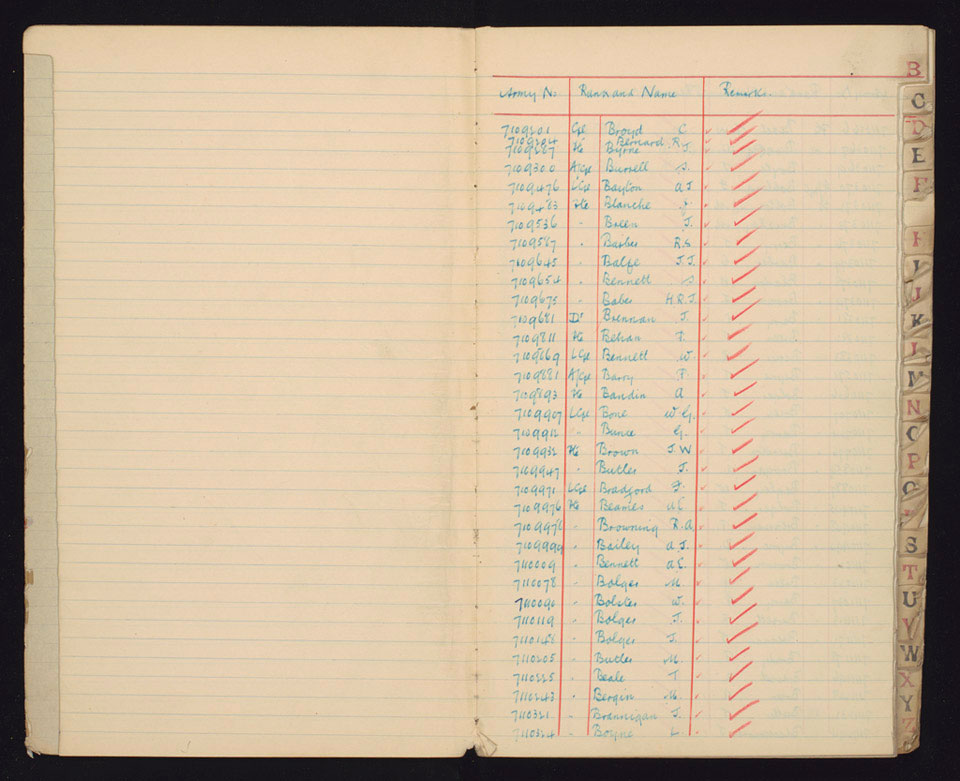 Army No. Rank and Name Remarks.
7109201 Cpl Broyd C.
7109204 Bernard R.
7109287 Pte Byrne J.
7109300 A/Cpl Burrell S.
7109476 L/Cpl Bayton A J
7109483 Pte Blanche J.
7109536 " Breen J.
7109587 " Barber R.S.
7109645 " Balfe J.J.
7109654 " Bennett S
7109675 " Baber H.R.J.
7109681 Dr Brennan J.
7109811 Pte Behan P.
7109869 L/Cpl Bennett W.
7109881 A/Cpl Barry P.
7109893 Pte Bandin A
7109907 L/Cpl Bone W G.
7109912 " Bunce G.
7109932 Pte Brown J.W
7109947 " Butler J.
7109971 L/Cpl Bradford F.
7109976 Pte Beames A C.
7109978 " Browning R.A
7109999 " Bailey A J.
7110009 " Bennett A C.
7110078 " Bolger M.
7110090 " Bolster W.
7110119 " Bolger J.
7110148 " Bolger J.
7110205 " Butler M.
7110225 " Beale T
7110243 " Bergin M.
7110321 " Brannigan J.
7110324 " Boyne L.
B
C
D
E
F
H
I
J
K
L
M
N
O
P
Q
S
T
U
V
W
X
Y
Z